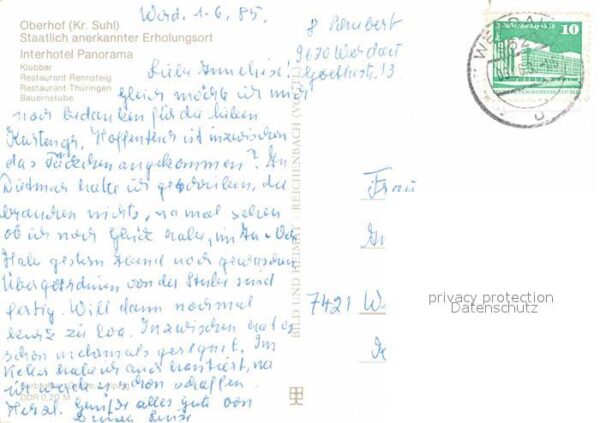 Werd. 1.6.85.
Oberhof (Kr. Suhl)
Staatlich anerkannter Erholungsort
Interhotel Panorama
Klubbar
Restaurant Rennsteig
Restaurant Thüringen
Bauernstube
9620 Werdau
Goethestr. 13
10
Liebe Anneliese!
gleich möchte ich mich
noch bedanken für die lieben
Kartengr. Hoffentlich ist inzwischen
das angekommen? An
Dietmar hatte ich geschrieben, die
brauchen nichts, na mal sehen
ob ich noch Glück habe, im An- Ver
Habe gestern Abend noch gewaschen
Übergardinen von der Stube sind
fertig. Will dann nochmal
kurz zu Inzwischen hat es
schon mehrmals geregnet. Im
Keller habe ich auch hantiert, na
ich werde es schon schaffen.
Herzl. Grüße alles gute von
Deiner
BILD UND HEIMAT REICHENBACH (VOGTL)
Frau
7421 W
privacy protection
Datenschutz
DDR 0,20 M